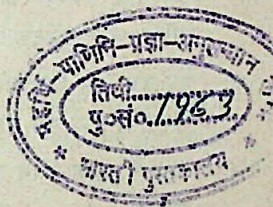 महर्षि-पाणिनि-प्रज्ञा-अनुसन्धान
तिथी..............
पु०सं०.1963
* भारती पुस्तकालय *